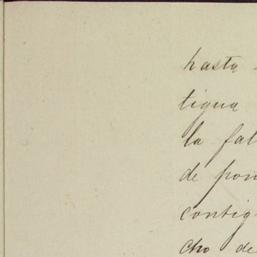 hasta
tigua
la fal
de pon
contig
cho de